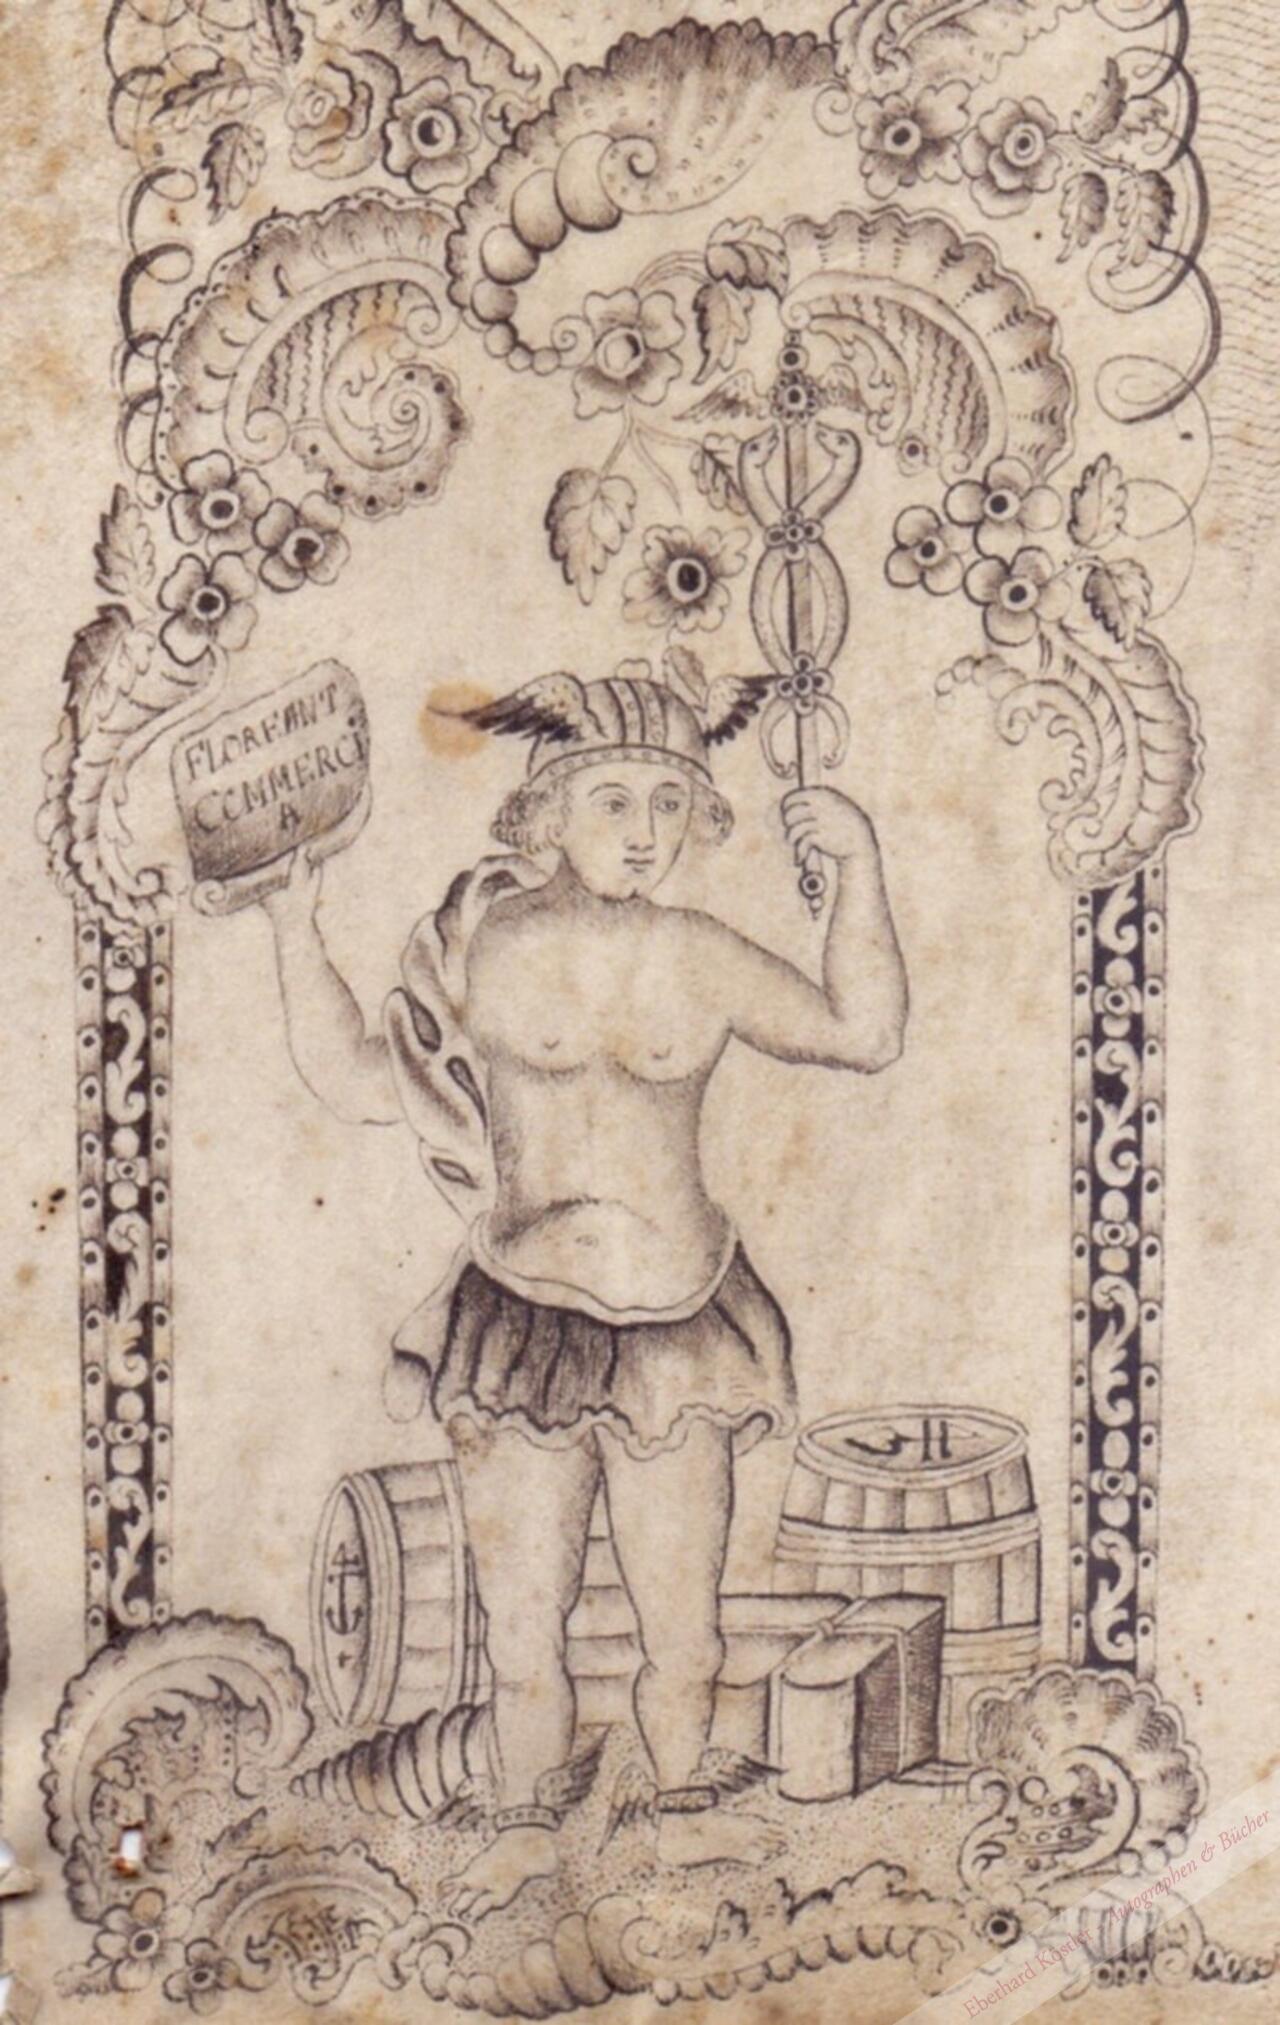 FLOREANT
COMMERCI
A
H
Eberhard Köstler Autographen & Bücher